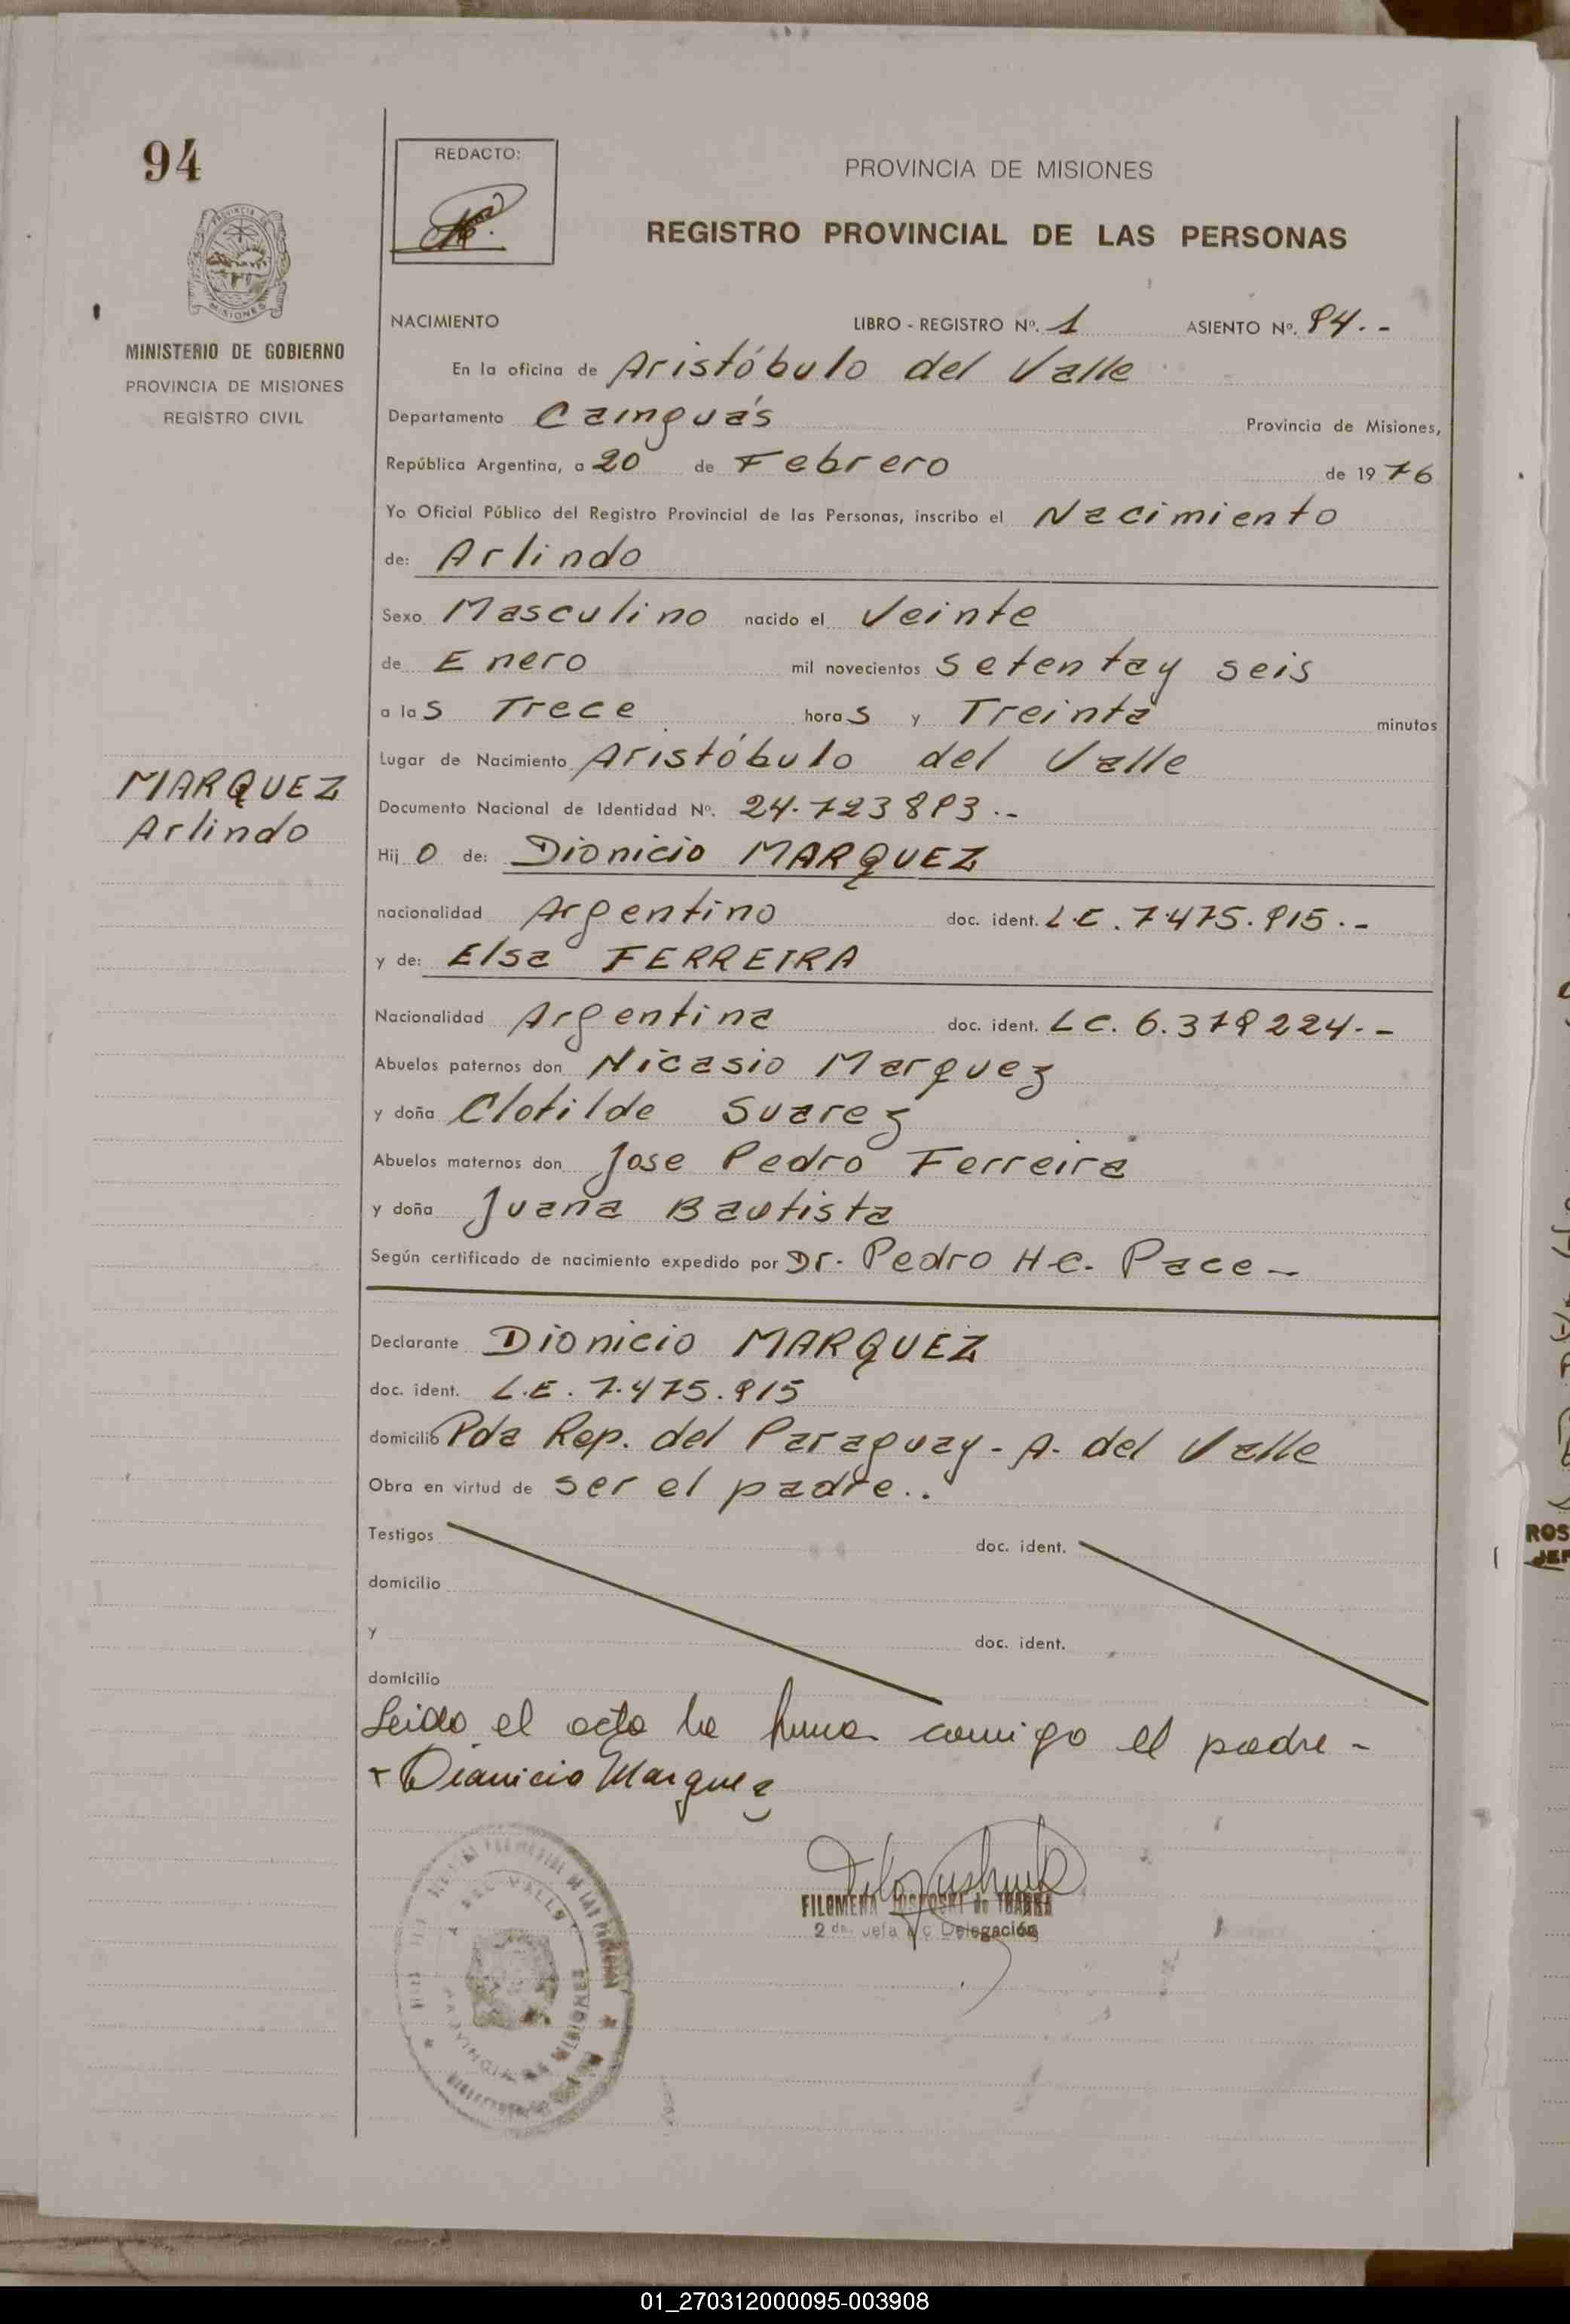 94
REDACTO:
PROVINCIA DE MISIONES
REGISTRO PROVINCIAL DE LAS PERSONAS
MINISTERIO DE GOBIERNO
PROVINCIA DE MISIONES
REGISTRO CIVIL
NACIMIENTO LIBRO - REGISTRO Nº. 1 ASIENTO Nº. 94.-
En la oficina de Aristóbulo del Valle
Departamento Cainguás Provincia de Misiones,
República Argentina, a 20 de Febrero de 1976
Yo Oficial Público del Registro Provincial de las Personas, inscribo el Nacimiento
de: Arlindo
Sexo Masculino nacido el Veinte
de Enero mil novecientos setenta y seis
a las Trece horas y Treinta minutos
Lugar de Nacimiento Aristóbulo del Valle
MARQUEZ
Arlindo
Documento Nacional de Identidad Nº. 24.723893.-
Hijo de: Dionicio MARQUEZ
nacionalidad Argentino doc. ident. L.E. 7.475.915.-
y de: Elsa FERREIRA
Nacionalidad Argentina doc. ident. L.C. 6.379224.-
Abuelos paternos don Nicasio Marquez
y doña Clotilde Suarez
Abuelos maternos don Jose Pedro Ferreira
y doña Juana Bautista
Según certificado de nacimiento expedido por Dr. Pedro H.C. Pace -
Declarante Dionicio MARQUEZ
doc. ident. L.E. 7.475.915
domicilio Pda Rep. del Paraguay - A. del Valle
Obra en virtud de ser el padre..
Testigos doc. ident.
domicilio
y doc. ident.
domicilio
Leido el acta la firma comigo el padre -
Dionicio Marquez
FILOMENA de IBARRA
2da. Jefa a/c Delegación
A. DEL VALLE
PROVINCIA DE MISIONES
ROS
JEF
01_270312000095-003908